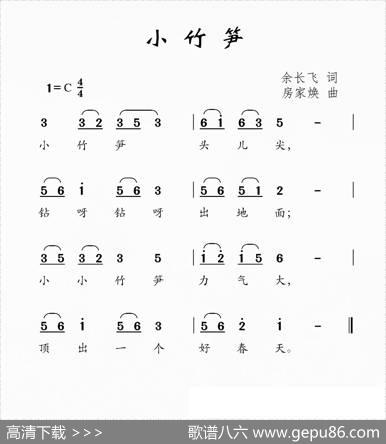 小 竹 笋
1=C 4/4
余长飞 词
房家焕 曲
3 3 2 3 5 3 | 6 1 6 3 5 - |
小 竹 笋 头 儿 尖,
5 6 i 5 6 3 | 5 6 5 1 2 - |
钻 呀 钻 呀 出 地 面;
3 5 3 2 3 5 | i 2 i 5 6 - |
小 小 竹 笋 力 气 大,
5 6 i 5 6 3 | 5 6 2 i - ‖
顶 出 一 个 好 春 天。
高清下载 >>> 歌谱八六 www.gepu86.com